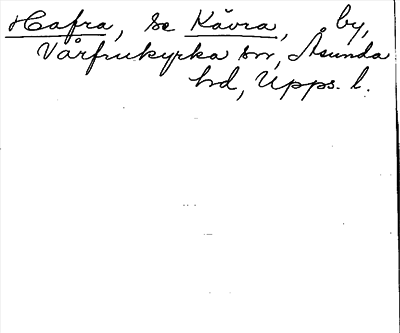 Hafra, se Kåvra, by,
Vårfrukyrka sn, Åsunda
hd, Upps. l.